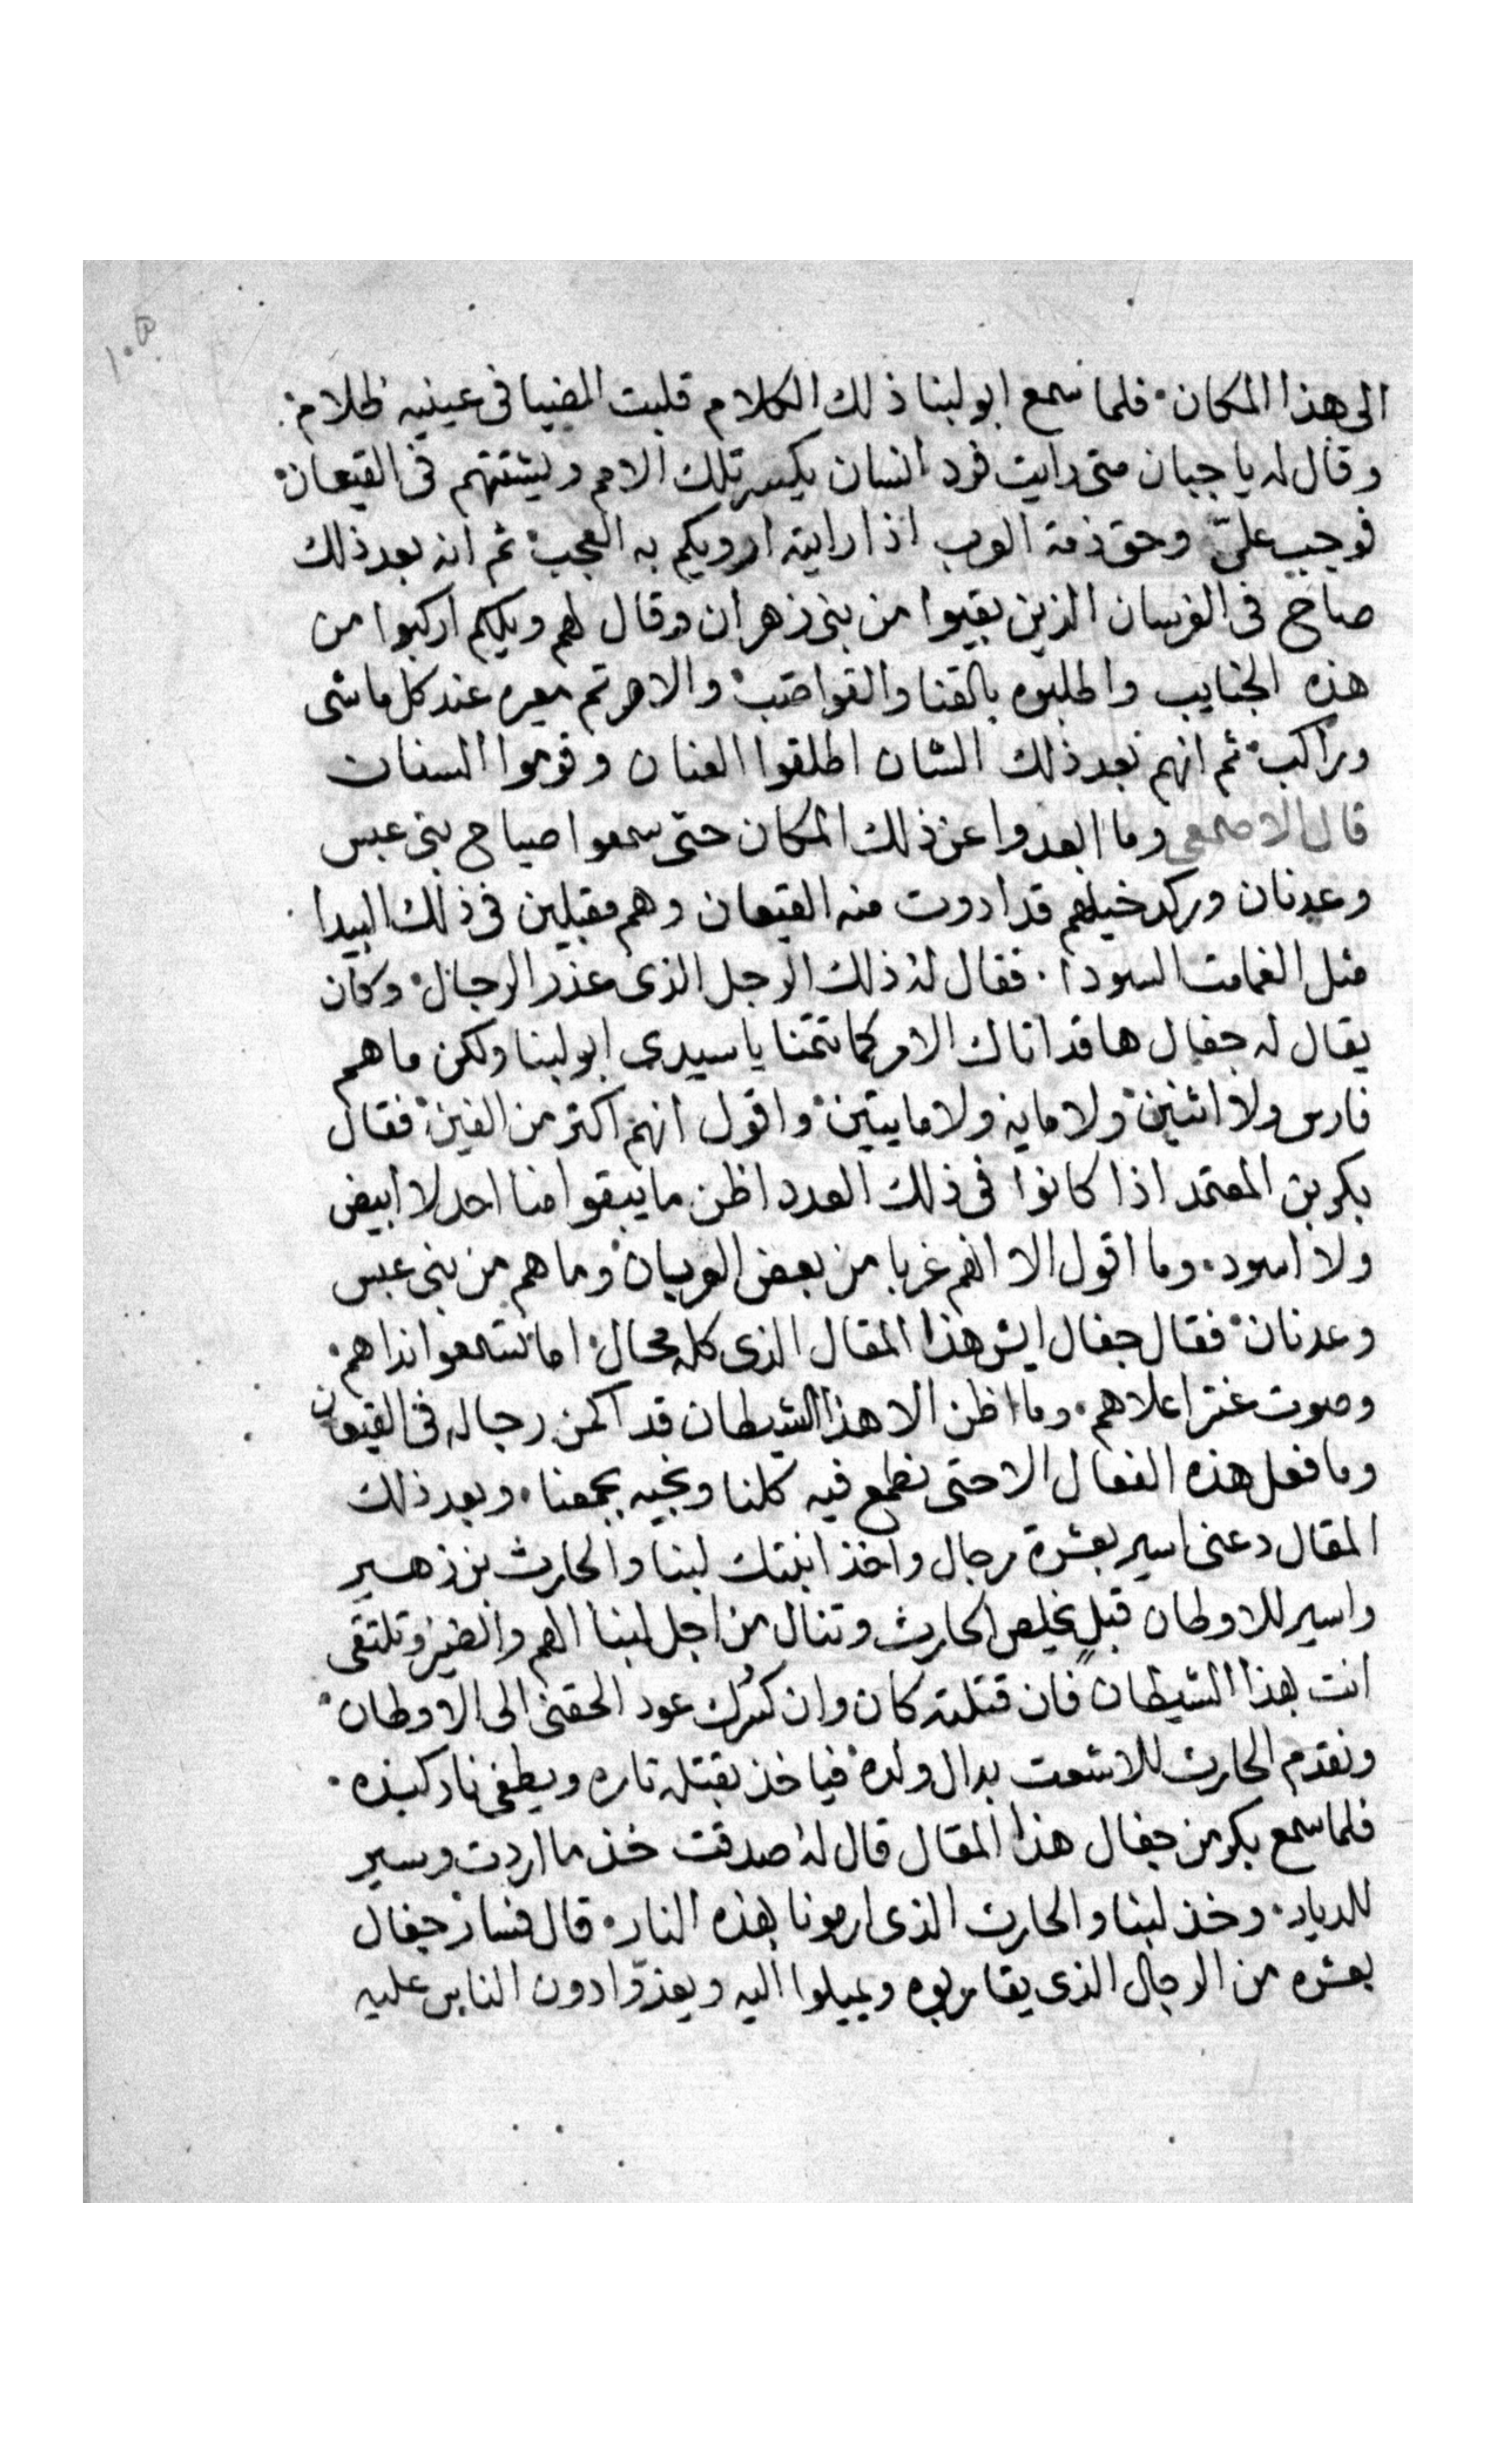 ١٠٥
الى هذا المكان فلما سمع ابو لبنا ذلك الكلام قلبت الضيا فى عينيه ظلام
وقال له يا جبان متى رايت فرد انسان يكسر تلك الامم ويشتتهم فى القيعان
فوجب علىّ وحق ذمة العرب اذا رايته ارويكم به العجب ثم انه بعد ذلك
صاح فى الفرسان الذين بقيوا من بنى زهران وقال لهم ويلكم اركبوا من
هذه الجنايب واطلبوه بالقنا والقواضب والا صرتم معيره عند كل ماشى
وراكب ثم انهم بعد ذلك الشان اطلقوا العنان وقوموا السنان
قال الاصمعى وما ابعدوا عن ذلك المكان حتى سمعوا صياح بنى عبس
وعدنان وركد خيلهم قد ادوت منه القيعان وهم مقبلين فى ذلك البيدا
مثل الغمامت السودا فقال له ذلك الرجل الذى عذر الرجال وكان
يقال له جفال ها قد اتاك الامر كما تتمنا يا سيدى ابو لبنا ولكن ما هم
فارس ولا اثنين ولا مايه ولا مايتين واقول انهم اكتر من الفين فقال
بكر بن المعتمد اذا كانوا فى ذلك العدد اظن ما يبقوا منا احد لا ابيض
ولا اسود وما اقول الا انهم غربا من بعض العربان وما هم من بنى عبس
وعدنان فقال جفال ايش هذا المقال الذى كله محال اما تسمعوا نداهم
وصوت عنتر اعلاهم وما اظن الا هذا الشيطان قد اكمن رجاله فى القيعان
وما فعل هذه الفعال الا حتى نطمع فيه كلنا ونجيه بجمعنا وبعد ذلك
المقال دعنى اسير بعشرة رجال واخذ ابنتك لبنا والحارث بن زهير
واسير للاوطان قبل يخلص الحارث وتنال من اجل لبنا الهم والضير وتلتقى
انت بهذا الشيطان فان قتلته كان وان كسرك عود الحقنى الى الاوطان
ونقدم الحارث للاشعت بدال ولده فياخذ بقتله تاره ويطفى نار كبده
فلما سمع بكر من جفال هذا المقال قال له صدقت خذ ما اردت وسير
للديار وخذ لبنا والحارث الذى ارمونا بهذه النار قال فسار جفال
بعشره من الرجال الذى يقاربوه ويميلوا اليه ويعزوا دون الناس عليه